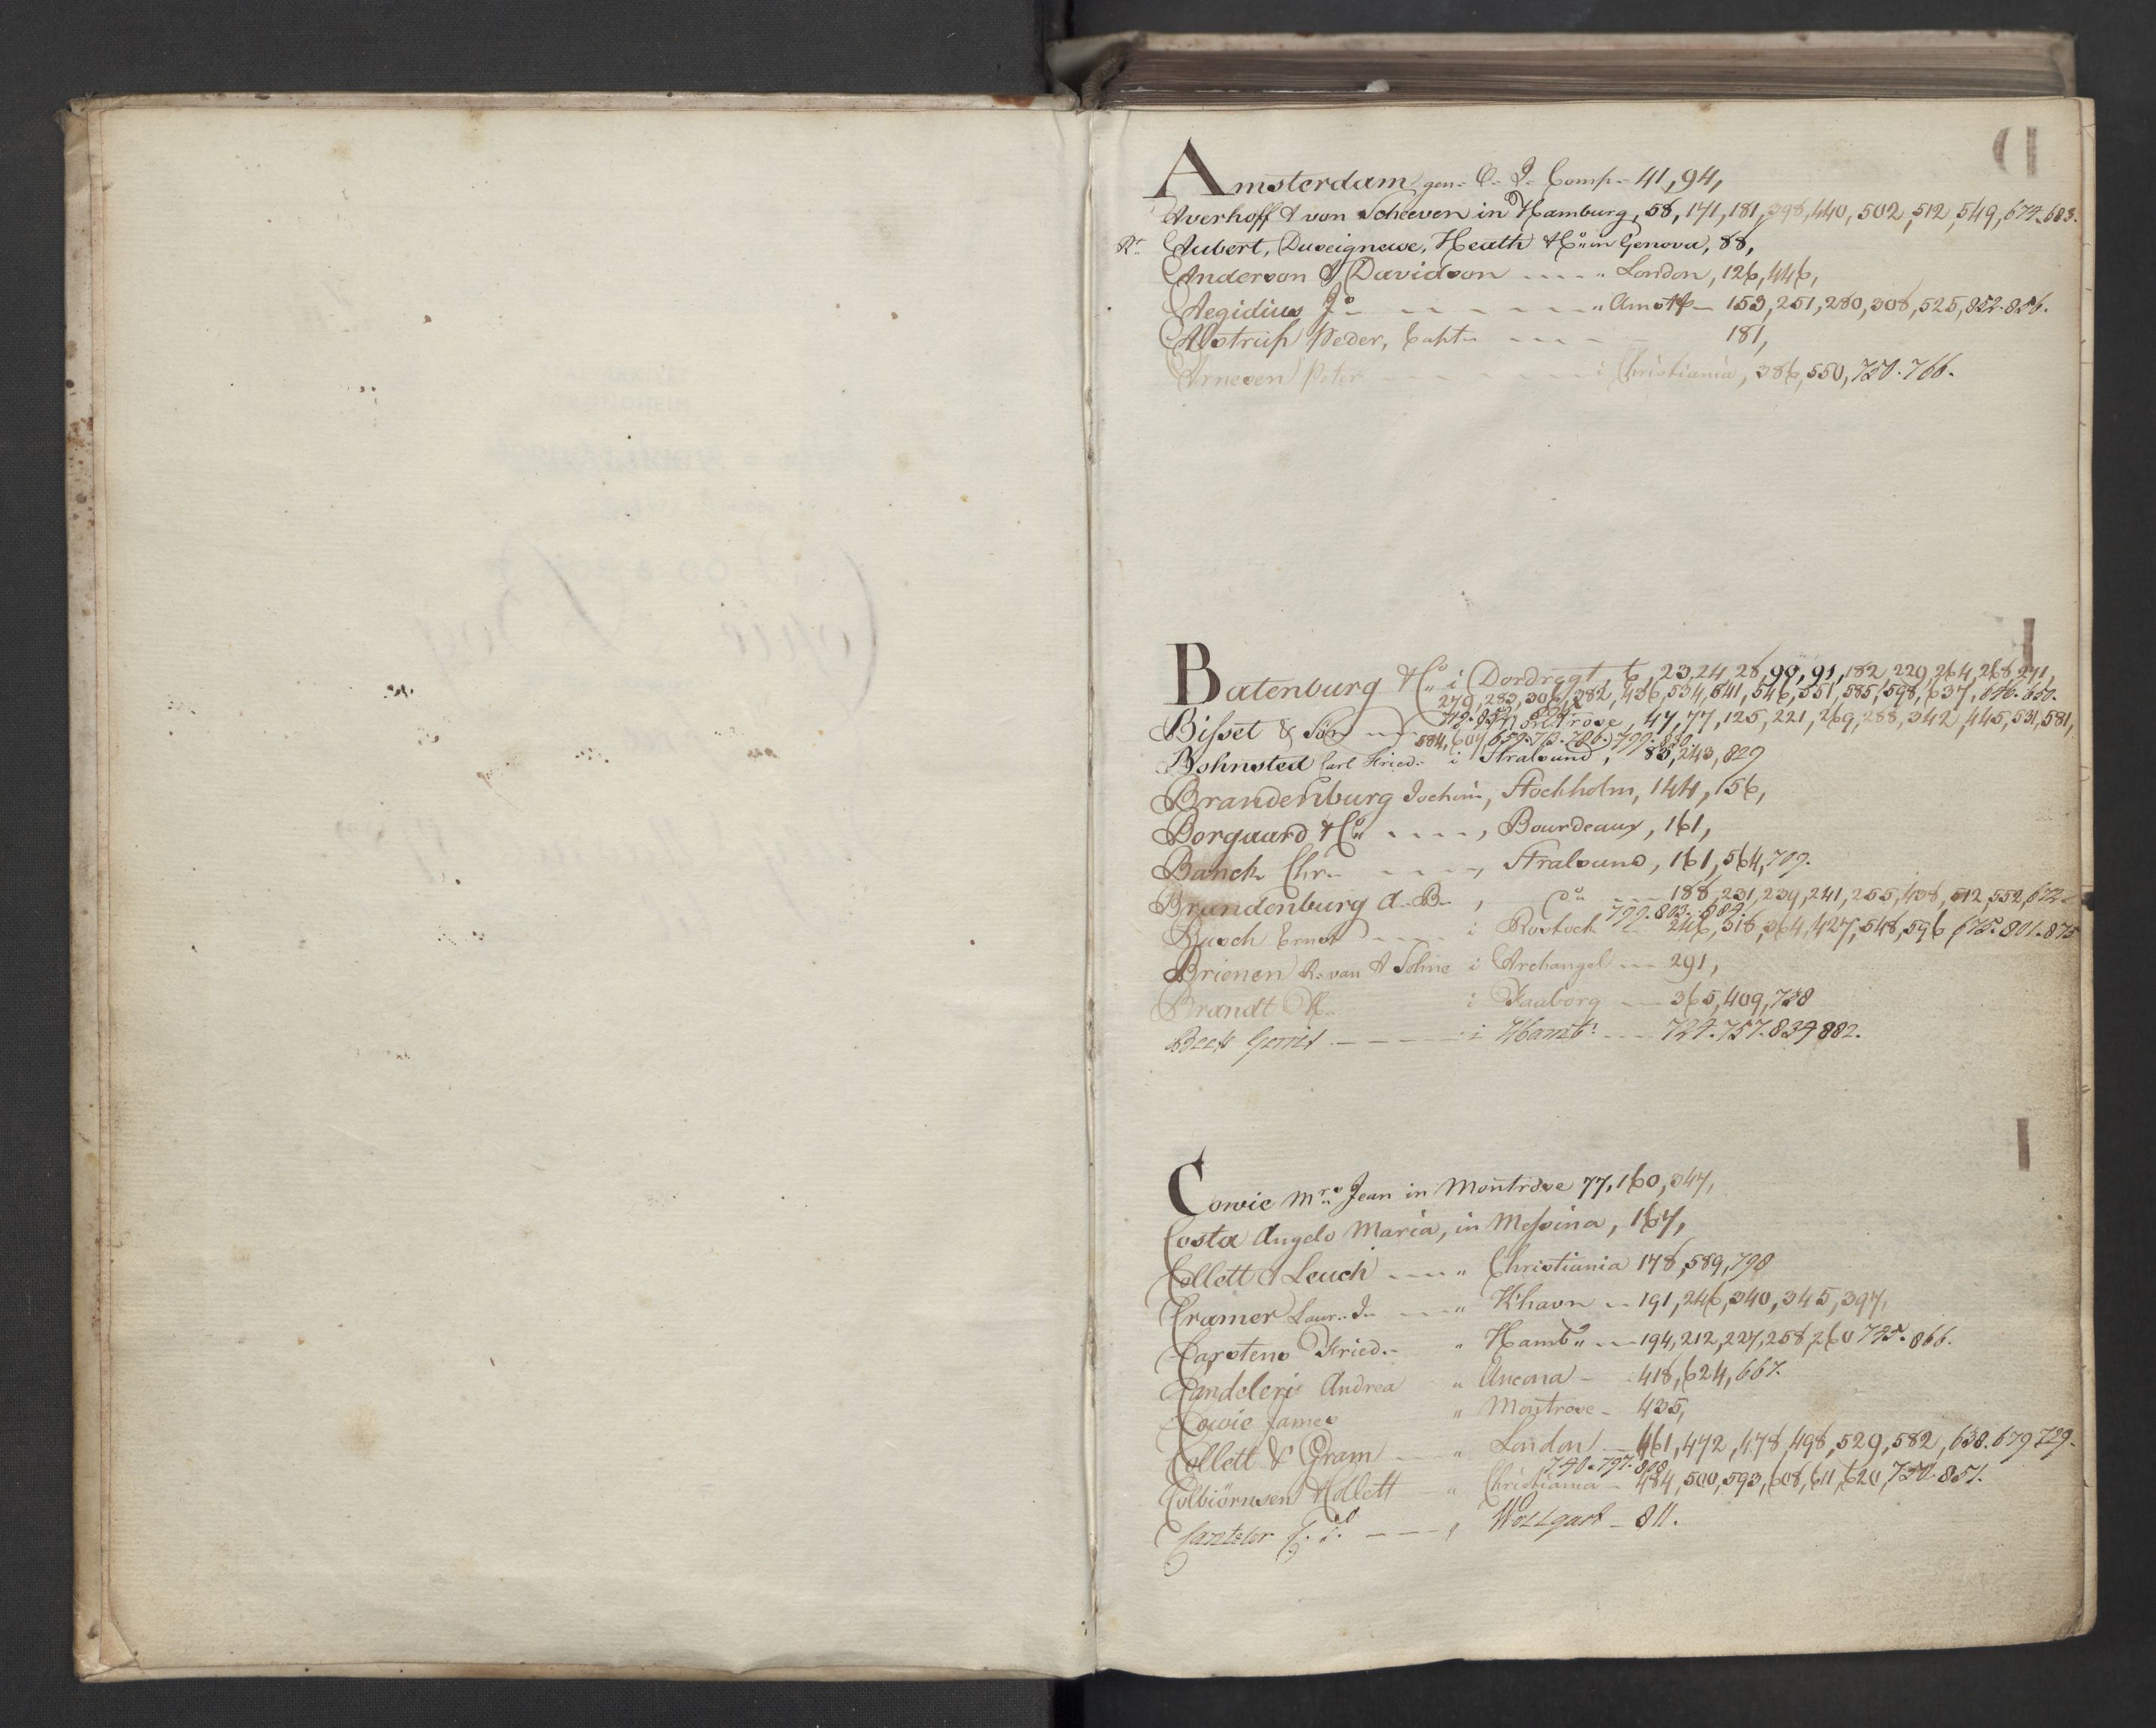 Amsterdam gen. O. I. Comp. 41, 94,
Averhoff & von Scheeven in Hamburg, 58, 171, 181, 398, 440, 502, 512, 549, 674. 683.
Rr. Aubert, Duseigneux, Heath & Co. in Genova, 88,
Anderson & Davidson „ London, 126, 446,
Aegidius Jo „ Amstr 153, 251, 280, 308, 525, 852. 856.
Alstrup Peder, Captn 181,
Arnesen Peter i Christiania, 386, 550, 750. 766.
Batenburg & Co. i Dordregt, 6, 23, 24, 28, 90, 91, 182, 229, 264, 268, 271,
279, 283, 306, 382, 436, 534, 541, 546, 551, 585, 598, 637, 646. 650.
Bisset & Sön Montrose, 47, 77, 125, 221, 269, 288, 342, 445, 531, 581,
584, 604, 659. 713. 786. 799. 830.
Bohnsted Carl Fried. i Stralsund, 83, 243, 829
Brandenburg Jochim, Stockholm, 144, 156,
Borgaard & Co , Bourdeaux, 161,
Banck Chr. , Stralsund, 161, 564, 709.
Brandenburg A. B. , Do 188, 231, 239, 241, 255, 408, 512, 552, 672
799. 803. 804.
Busch Ernst i Rostock 246, 318, 364, 427, 548, 596, 675. 801. 875
Brienen R. van & Sohne i Archangel 291,
Brandt M. i Faaborg 365, 409, 728
Beets Gerrit i Hambr 724. 757. 834 882.
Cowie Mrs Jean in Montrose 77, 160, 347,
Costa Angelo Maria, in Messina, 167,
Collett & Leuch „ Christiania 178, 589, 798
Cramer Laur. J. „ K'havn 191, 246, 340, 345, 397,
Carstens Fried. „ Hamb. 194, 212, 227, 258, 260 725. 866.
Candelari Andrea „ Ancona 418, 624, 667.
Cowie James „ Montrose 435,
Collett & Gram „ London 461, 472, 478, 498, 529, 582, 638. 679 729.
740. 797. 808
Colbiörnsen & Collett „ Christiania 484, 500, 593, 608, 611, 620, 750. 851.
Cantzler „ Wollgast 811.